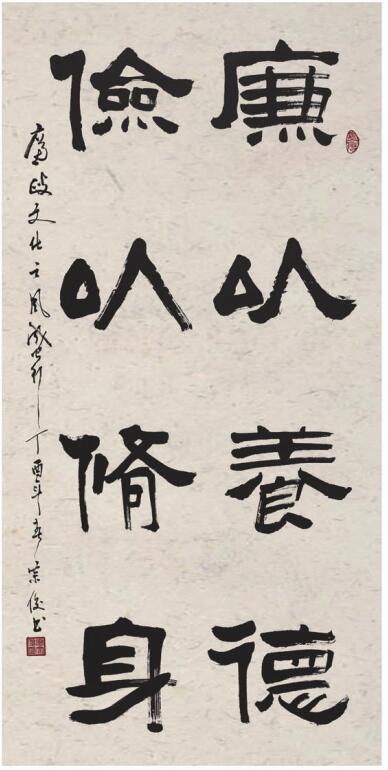 廉以養德
儉以脩身
廉政文化之風 丁酉年春 宗俊书